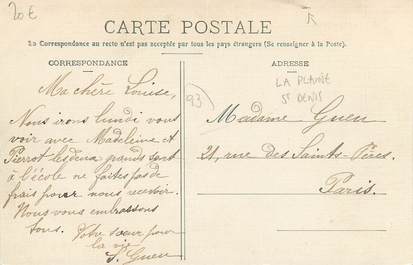 20 €
CARTE POSTALE
La Correspondance au recto n'est pas acceptée par tous les pays étrangers (Se renseigner à la Poste).
CORRESPONDANCE
ADRESSE
Ma chère Louise,
Nous irons lundi vous
voir avec Madeleine et
Pierrot les deux grands sont
à l'école ne faites pas de
frais pour nous recevoir.
Nous vous embrassons
tous. Votre sœur pour
la vie
S. Gueu
93
LA PLAINE
ST DENIS
Madame Gueu
21, rue des Saints-Pères.
Paris.